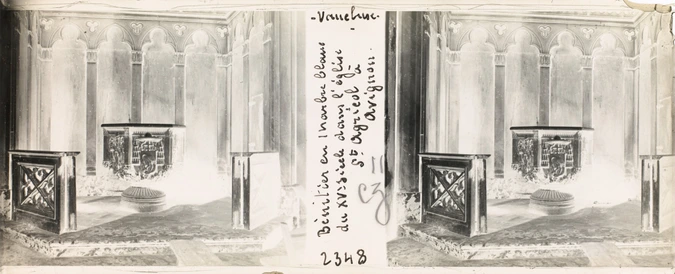 - Vaucluse -
Bénitier en marbre blanc
du XVe siècle dans l'église
St Agricol à
Avignon.
11
2348